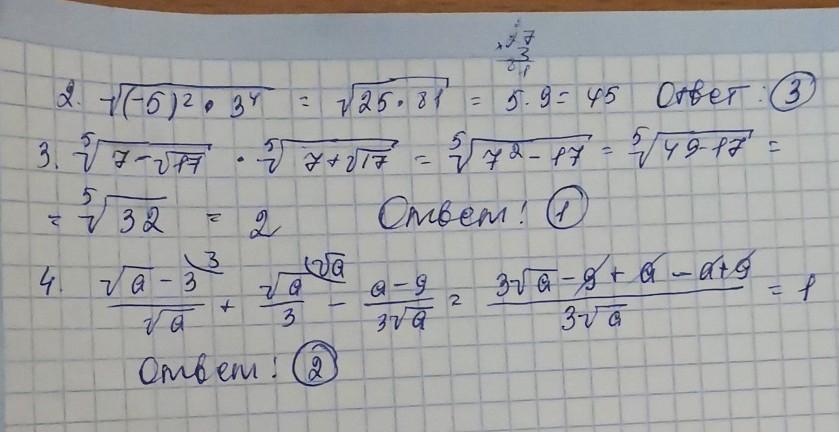 27
× 3
81
2. √((-5)² · 3⁴) = √(25 · 81) = 5 · 9 = 45 Ответ: ③
3. ⁵√(7 - √17) · ⁵√(7 + √17) = ⁵√(7² - 17) = ⁵√(49 - 17) =
= ⁵√32 = 2 Ответ: ①
4. (√a - 3)/√a ⁽³ + √a/3 ⁽√a - (a - 9)/(3√a) = (3√a - 9 + a - a + 9)/(3√a) = 1
Ответ: ②